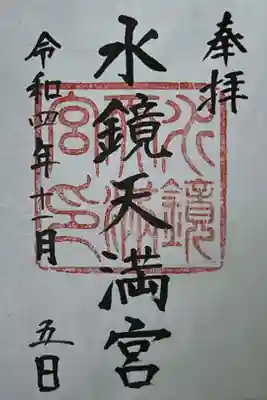 奉拝
水鏡天満宮
水鏡天満宮印
令和四年十一月
五日